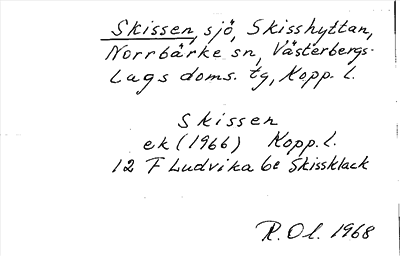 Skissen, sjö, Skisshyttan,
Norrbärke sn, Västerbergs-
lags doms. tg, Kopp. l.
Skissen
ek (1966) Kopp. l.
12 F Ludvika 6e Skissklack
R. Ol. 1968